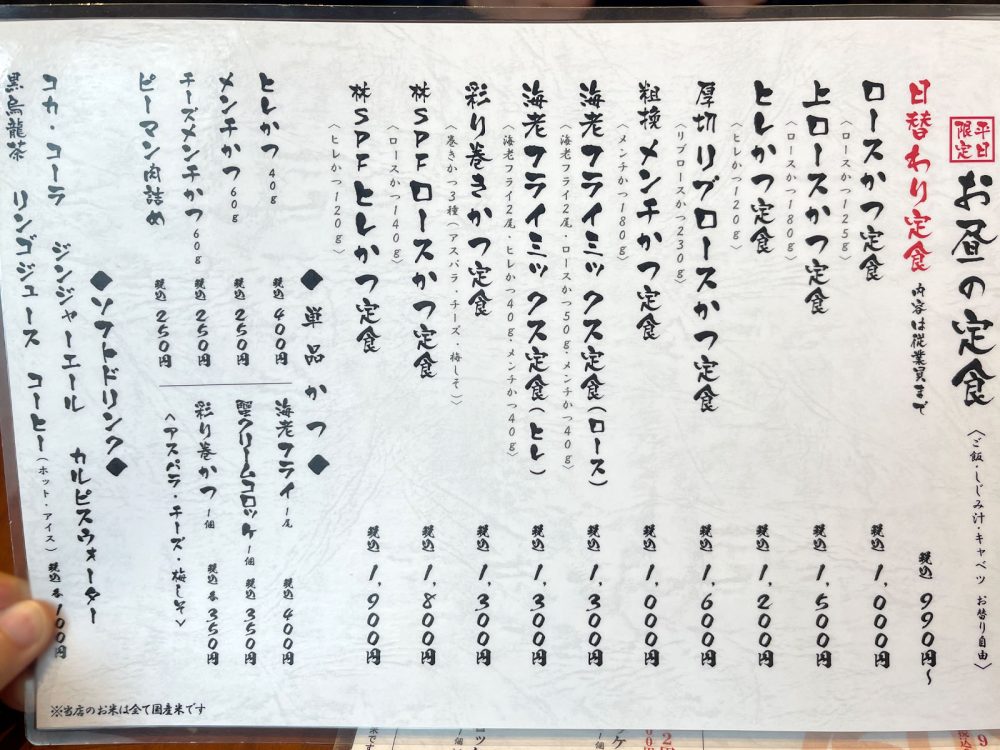 平日限定
お昼の定食
〈ご飯・しじみ汁・キャベツ お替り自由〉
日替わり定食 内容は従業員まで 税込 990円~
ロースかつ定食 税込 1,000円
〈ロースかつ125g〉
上ロースかつ定食 税込 1,500円
〈ロースかつ180g〉
ヒレかつ定食 税込 1,200円
〈ヒレかつ120g〉
厚切リブロースかつ定食 税込 1,600円
〈リブロースかつ230g〉
粗挽メンチかつ定食 税込 1,000円
〈メンチかつ180g〉
海老フライミックス定食(ロース) 税込 1,300円
〈海老フライ2尾・ロースかつ50g・メンチかつ40g〉
海老フライミックス定食(ヒレ) 税込 1,300円
〈海老フライ2尾・ヒレかつ40g・メンチかつ40g〉
彩り巻きかつ定食 税込 1,300円
〈巻きかつ3種(アスパラ・チーズ・梅しそ)〉
林SPFロースかつ定食 税込 1,800円
〈ロースかつ140g〉
林SPFヒレかつ定食 税込 1,900円
〈ヒレかつ120g〉
◆単品かつ◆
ヒレかつ 40g 税込 400円
メンチかつ 60g 税込 250円
チーズメンチかつ 60g 税込 250円
ピーマン肉詰め 税込 250円
海老フライ 1尾 税込 400円
蟹クリームコロッケ 1個 税込 350円
彩り巻かつ 1個 税込 各 350円
〈アスパラ・チーズ・梅しそ〉
◆ソフトドリンク◆
コカ・コーラ ジンジャーエール カルピスウォーター
黒烏龍茶 リンゴジュース コーヒー(ホット・アイス) 税込 各 100円
※当店のお米は全て国産米です